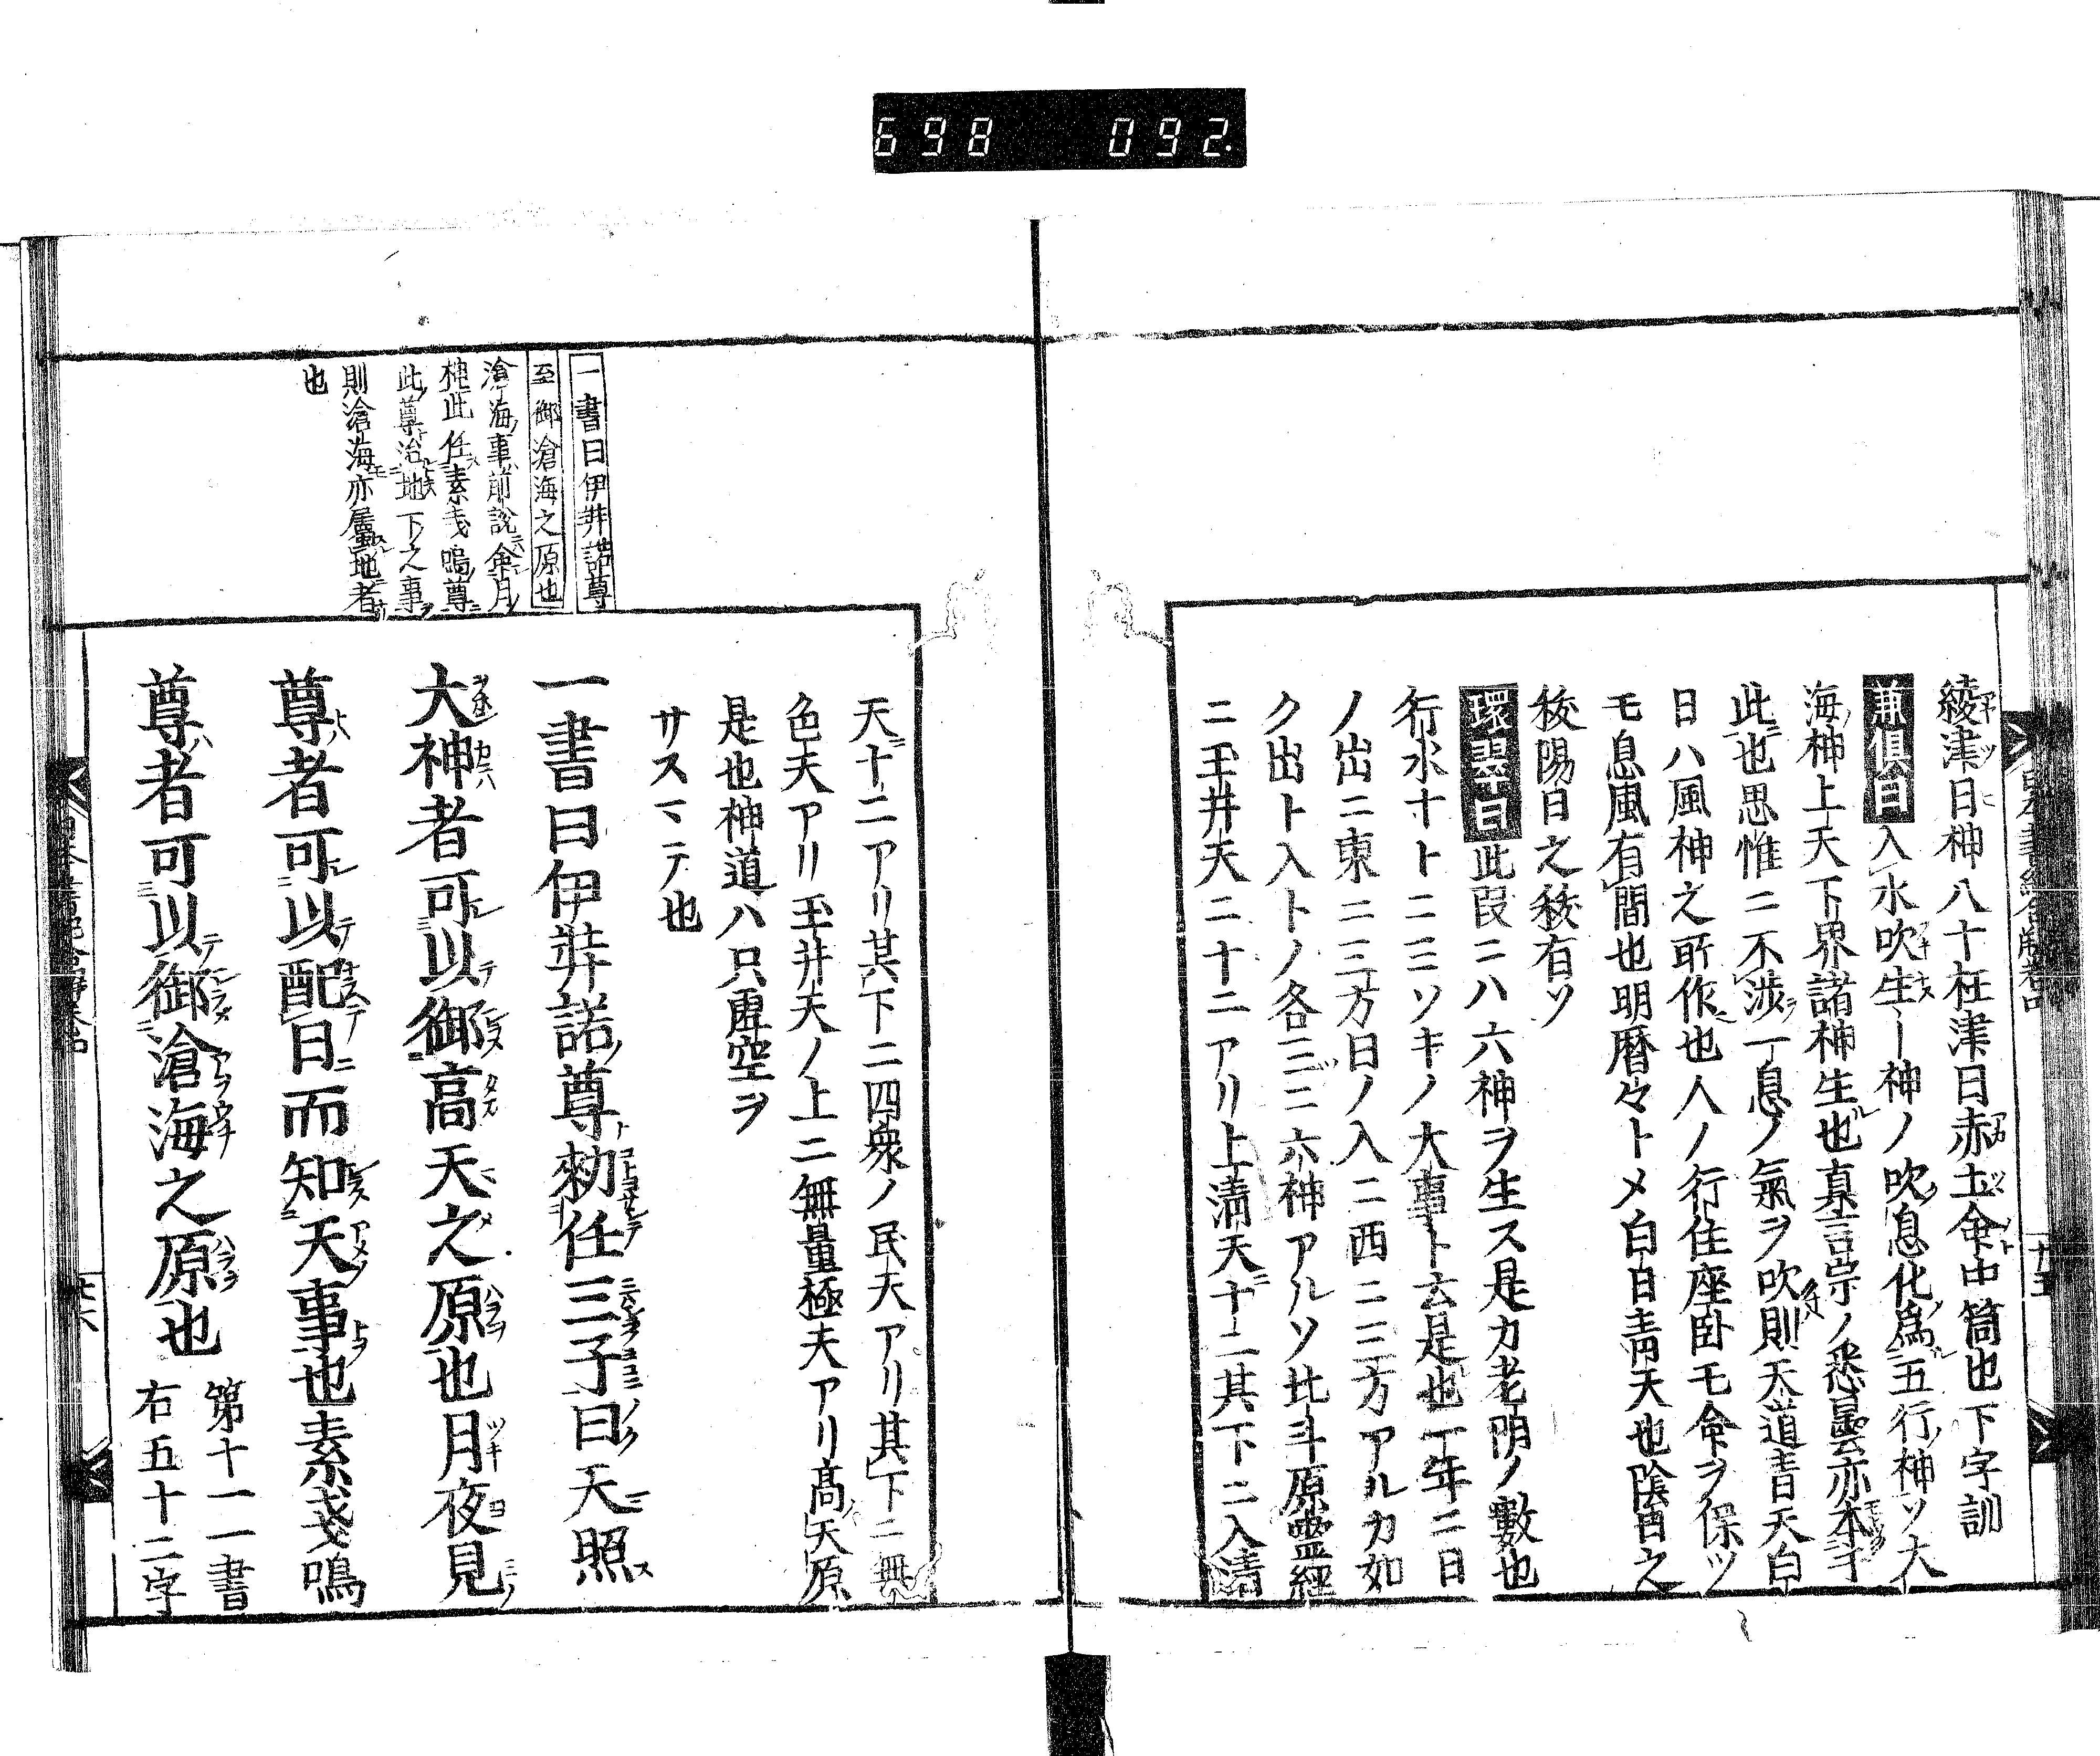 698 092.
綾津日神八十枉津日赤土命中筒也下字訓
兼倶曰入水吹生ー神ノ吹息化為五行神ソ大
海神上天下界諸神生也真言宗ノ悉曇亦本于
此也思惟ニ不渉一息ノ氣ヲ吹則天道青天白
日ハ風神之所作也人ノ行住座卧モ命ヲ保ツ
モ息風有間也明暦々トメ白日青天也陰留之
稜陽日之稜有ソ
環翠曰此段ニハ六神ヲ生ス是カ老陰ノ數也
行水十ト二三ソキノ大事ト云是也一年ニ日
ノ出ニ東ニ三方日ノ入ニ西ニ三方アルカ如
ク出ト入トノ各三ニ六神アルソ北斗原霊經
ニ玉井天二十二アリ上清天十二其下ニ入清
天十二アリ其下ニ四衆ノ民天アリ其下ニ無
色天アリ玉井天ノ上ニ無量極夫アリ高天原
是也神道ハ只虚空ヲ
サスマテ也
一書曰伊弉諾尊
至御滄海之原也
滄海事前説命月
神此任素戔嗚尊
此尊治地下之事
則滄海亦屬地者
也
一書曰伊弉諾尊勅任三子曰天照
大神者可以御高天之原也月夜見
尊者可以配日而知天事也素戔嗚
尊者可以御滄海之原也
第十一一書
右五十二字